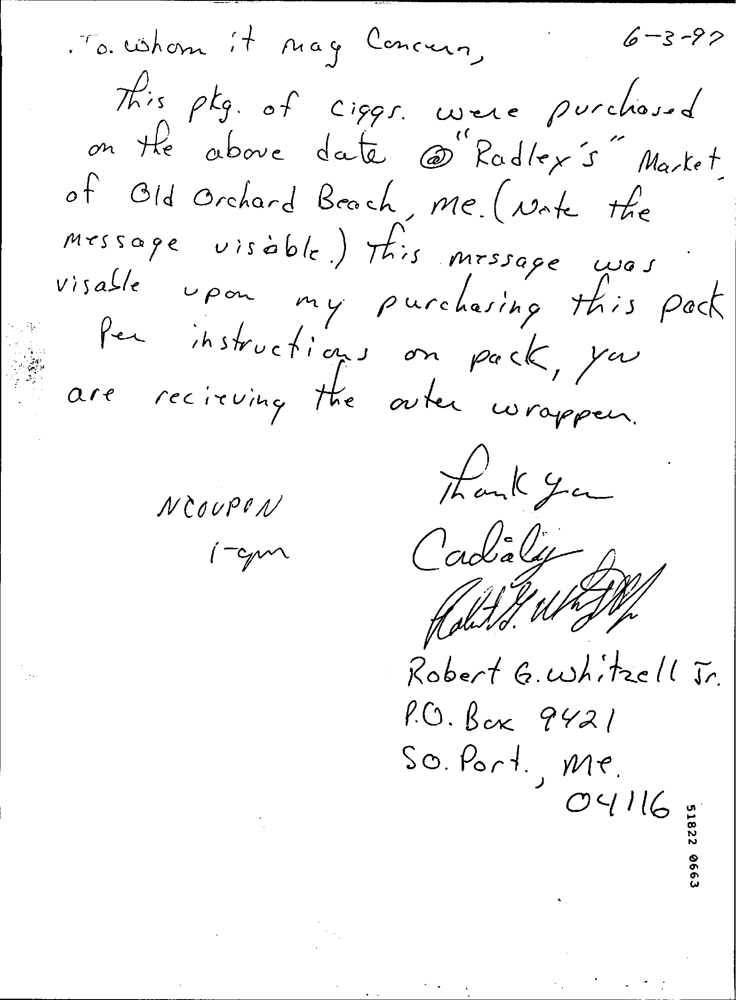 To. whom it may Concurn,
6-3-97
This pkg. of ciggs. were purchased
on the above date @ "Radlex's" Market,
of Old Orchard Beach, Me. (Note the
message visable.) This message was
visable upon my purchasing this pack
Per instructions on pack, you
are recieving the outer wrapper.
Thank you
NCOUPON
Cadialy
Robert G. Whitzell Jr.
P.O. Box 9421
So. Port., Me.
04116
51822 0663